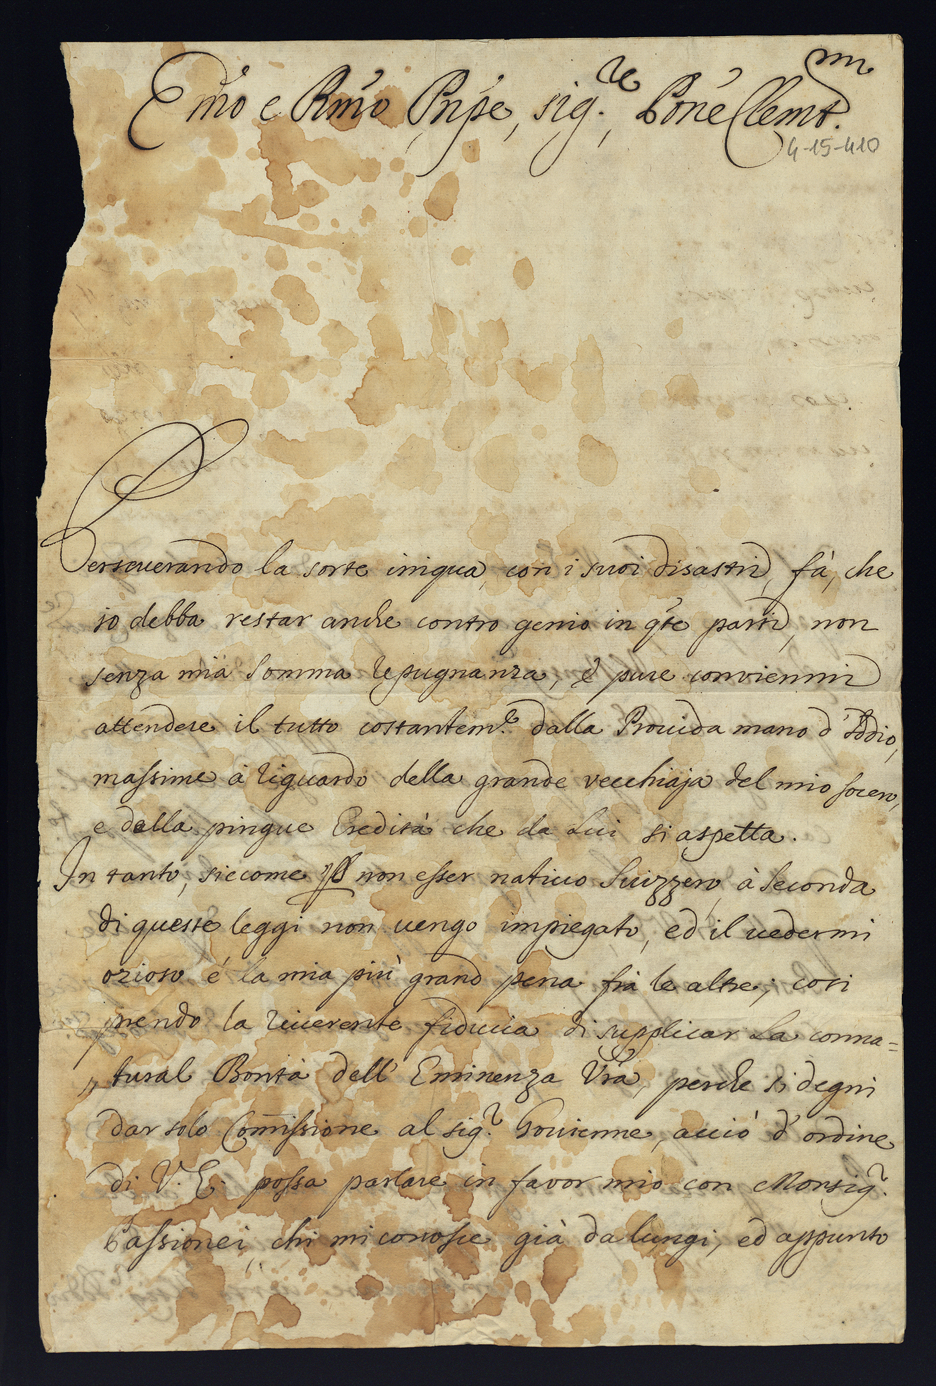 Emo e Rmo Pnpe, sig.re, Pone Clemt.mo
4-15-410
Perseuerando la sorte iniqua, con i suoi disastri, fà, che
io debba restar anche contro genio in qte parti, non
senza mia somma repugnanza, è pure conviemmi
attendere il tutto costantem.te dalla Prouida mano d'Iddio,
massime à riguardo della grande vecchiaja del mio socero,
e della pingue Eredità che da Lui si aspetta.
In tanto, siccome per non esser natiuo Suizzero, à seconda
di queste leggi non vengo impiegato, ed il uedermi
ozioso é la mia più grand pena frà le altre; cosi
prendo la riuerente fiducia di supplicar La conna=
tural Bontà dell' Eminenza Vra, perche si degni
dar solo Comissione al sig.r Gouienne, acciò d'ordine
di V. E. possa parlare in favor mio con Monsig.r
Passionei, chi mi conosce già da lungi, ed appunto